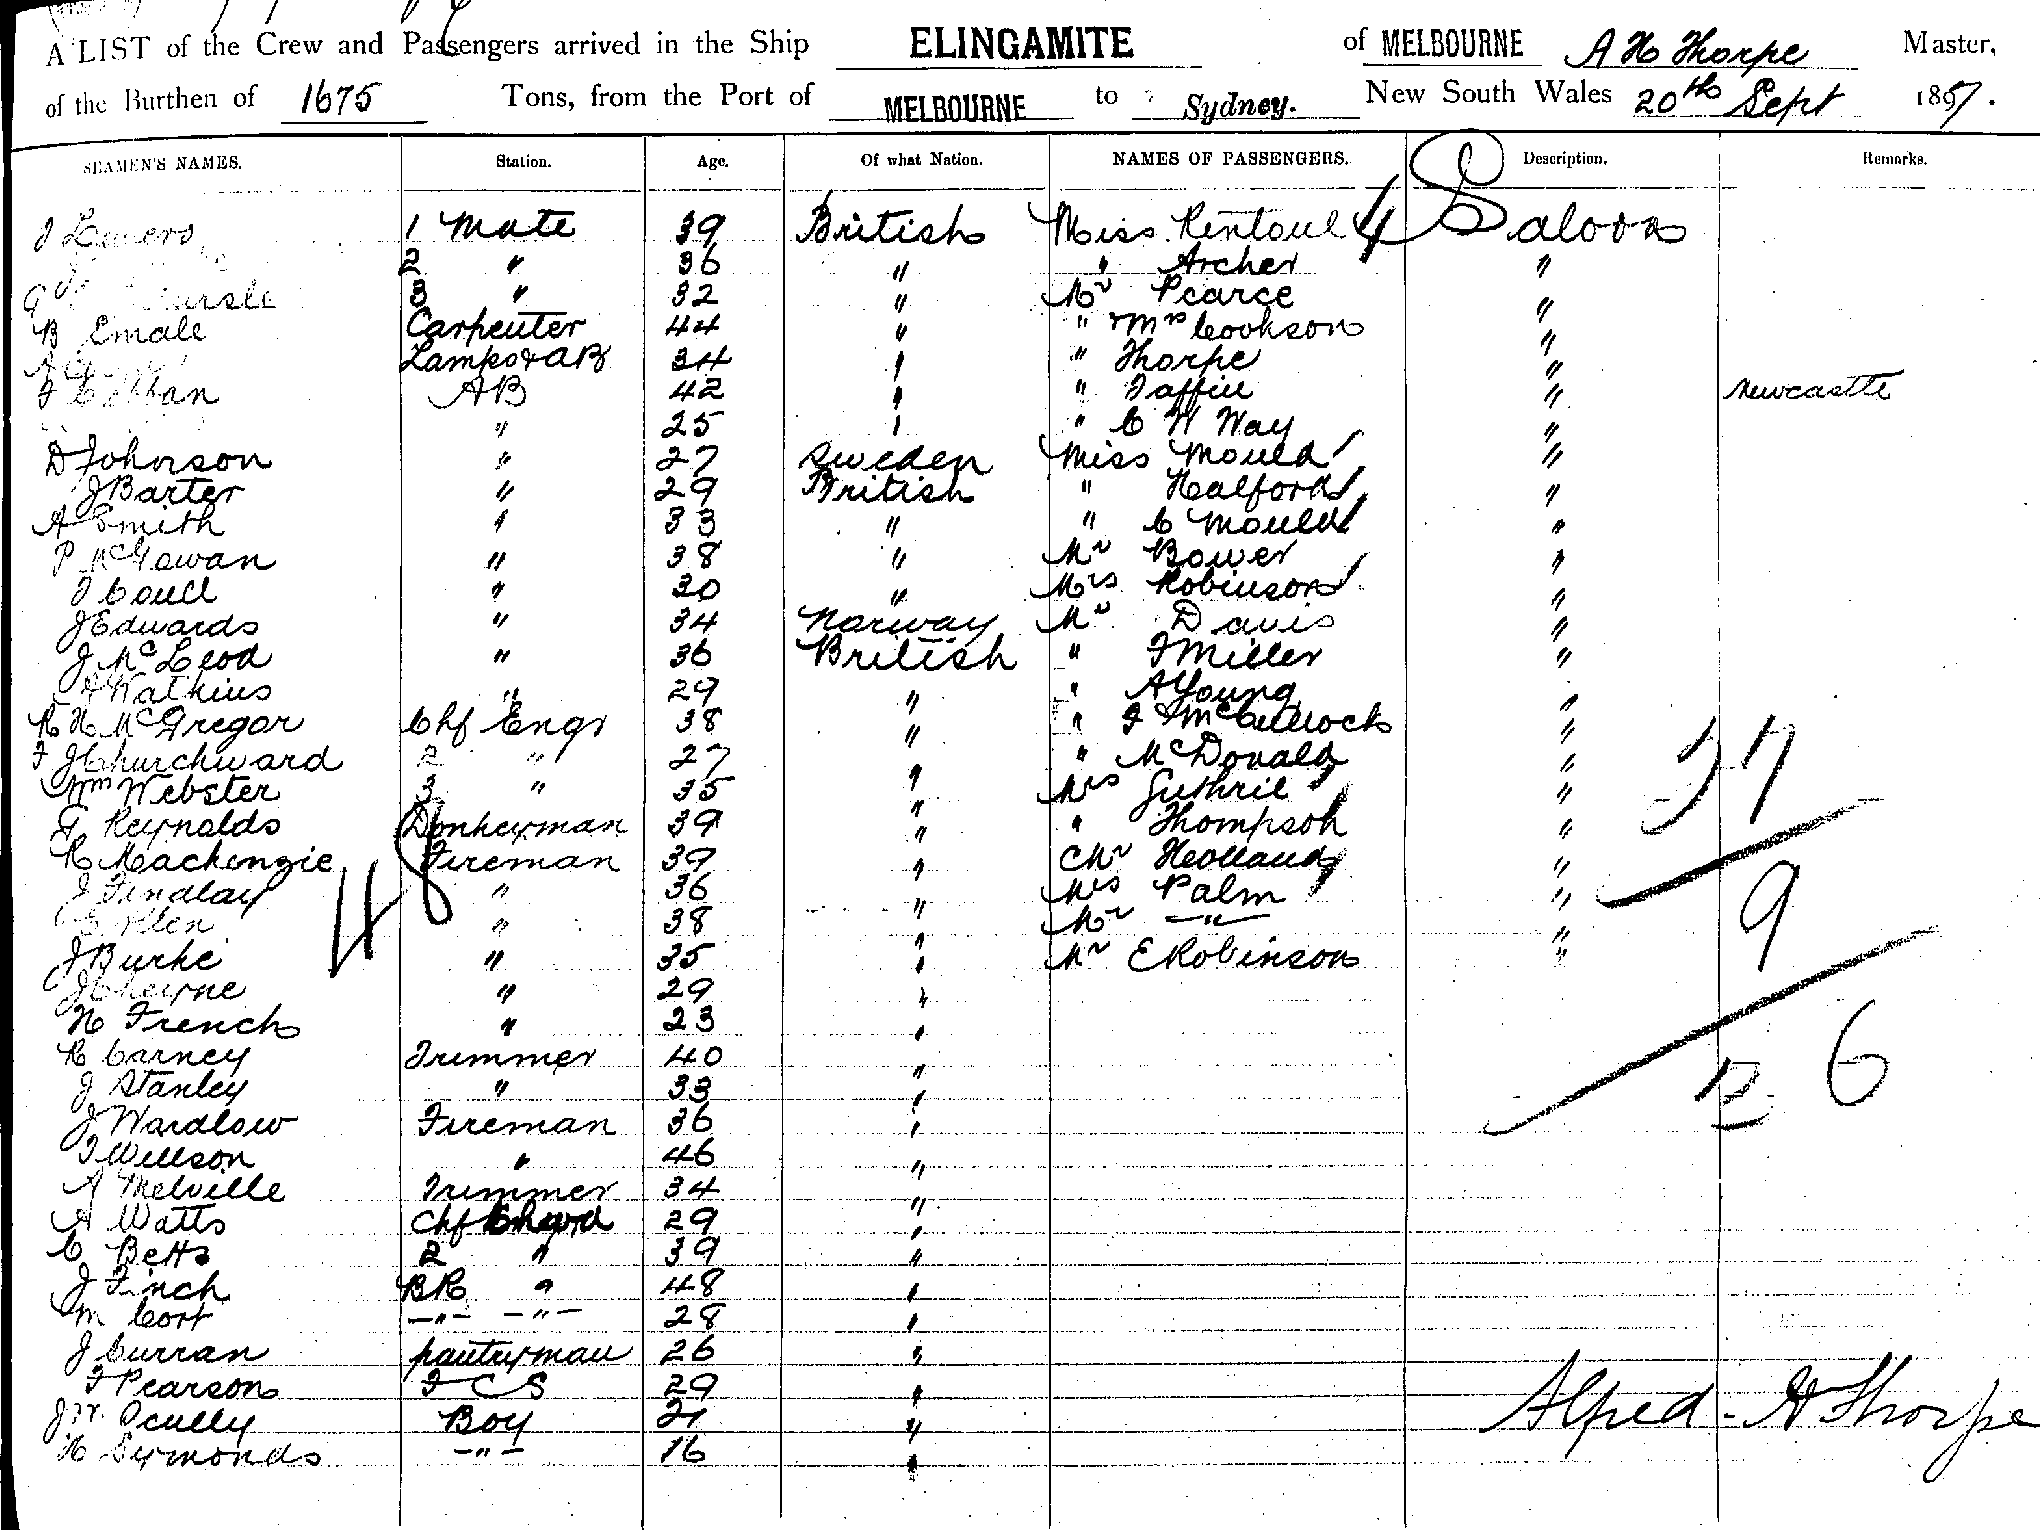 A LIST of the Crew and Passengers arrived in the Ship ELINGAMITE of MELBOURNE A H Thorpe Master,
of the Burthen of 1675 Tons, from the Port of MELBOURNE to Sydney. New South Wales 20th Sept 1897.
SEAMEN'S NAMES. Station. Age. Of what Nation. NAMES OF PASSENGERS. Description. Remarks.
1 Mate 39 British Miss Rentoul 4 Saloon
2 " 36 " " Archer "
3 " 32 " Mr Pearce "
B Emale Carpenter 44 " " & Mrs Cookson "
Lamps & AB 34 " " Thorpe "
AB 42 " " "  Newcastle
" 25 " " C W Way "
D Johnson " 27 Sweden Miss Mould "
J Barter " 29 British " Halford "
A Smith " 33 " " C Mould "
P McGowan " 38 " Mr Bower "
J Coull " 30 " Mrs Robinson "
J Edwards " 34 Norway Mr Davis "
J McLeod " 36 British " F Miller "
A Watkins " 29 " " A Young "
R H McGregor Chf Engr 38 " " J McCullock "
F J Churchward 2 " 27 " " McDonald "
Wm Webster 3 " 35 " Mrs Guthrie "
G Reynolds Donkeyman 39 " " Thompson "
R Mackenzie Fireman 39 " Mr Holland "
J Findlay " 36 " Mrs Palm "
Allen " 38 " Mr " "
J Burke " 35 " Mr E Robinson "
J Cheyne " 29 "
H French " 23 "
R Carney Trimmer 40 "
J Stanley " 33 "
J Wardlow Fireman 36 "
J Willson " 46 "
A Melville Trimmer 34 "
A Watts Chf 29 "
C Betts 2 " 39 "
J Finch BR " 48 "
M Cort " " 28 "
J Curran pantryman 26 "
F Pearson F C S 29 "
Jn Scully Boy 21 "
H Symonds " 16 "
48
37
9
6
12
Alfred H Thorpe